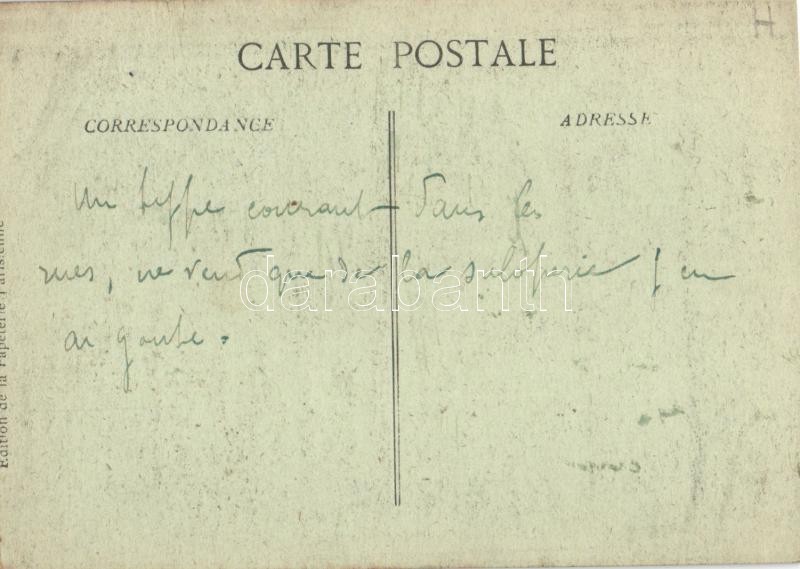 H
CARTE POSTALE
CORRESPONDANCE
ADRESSE
Un type courant dans les
rues, ne vend que de la saloperie j'en
ai gouté.
Edition de la Papeterie Parisienne
darabanth